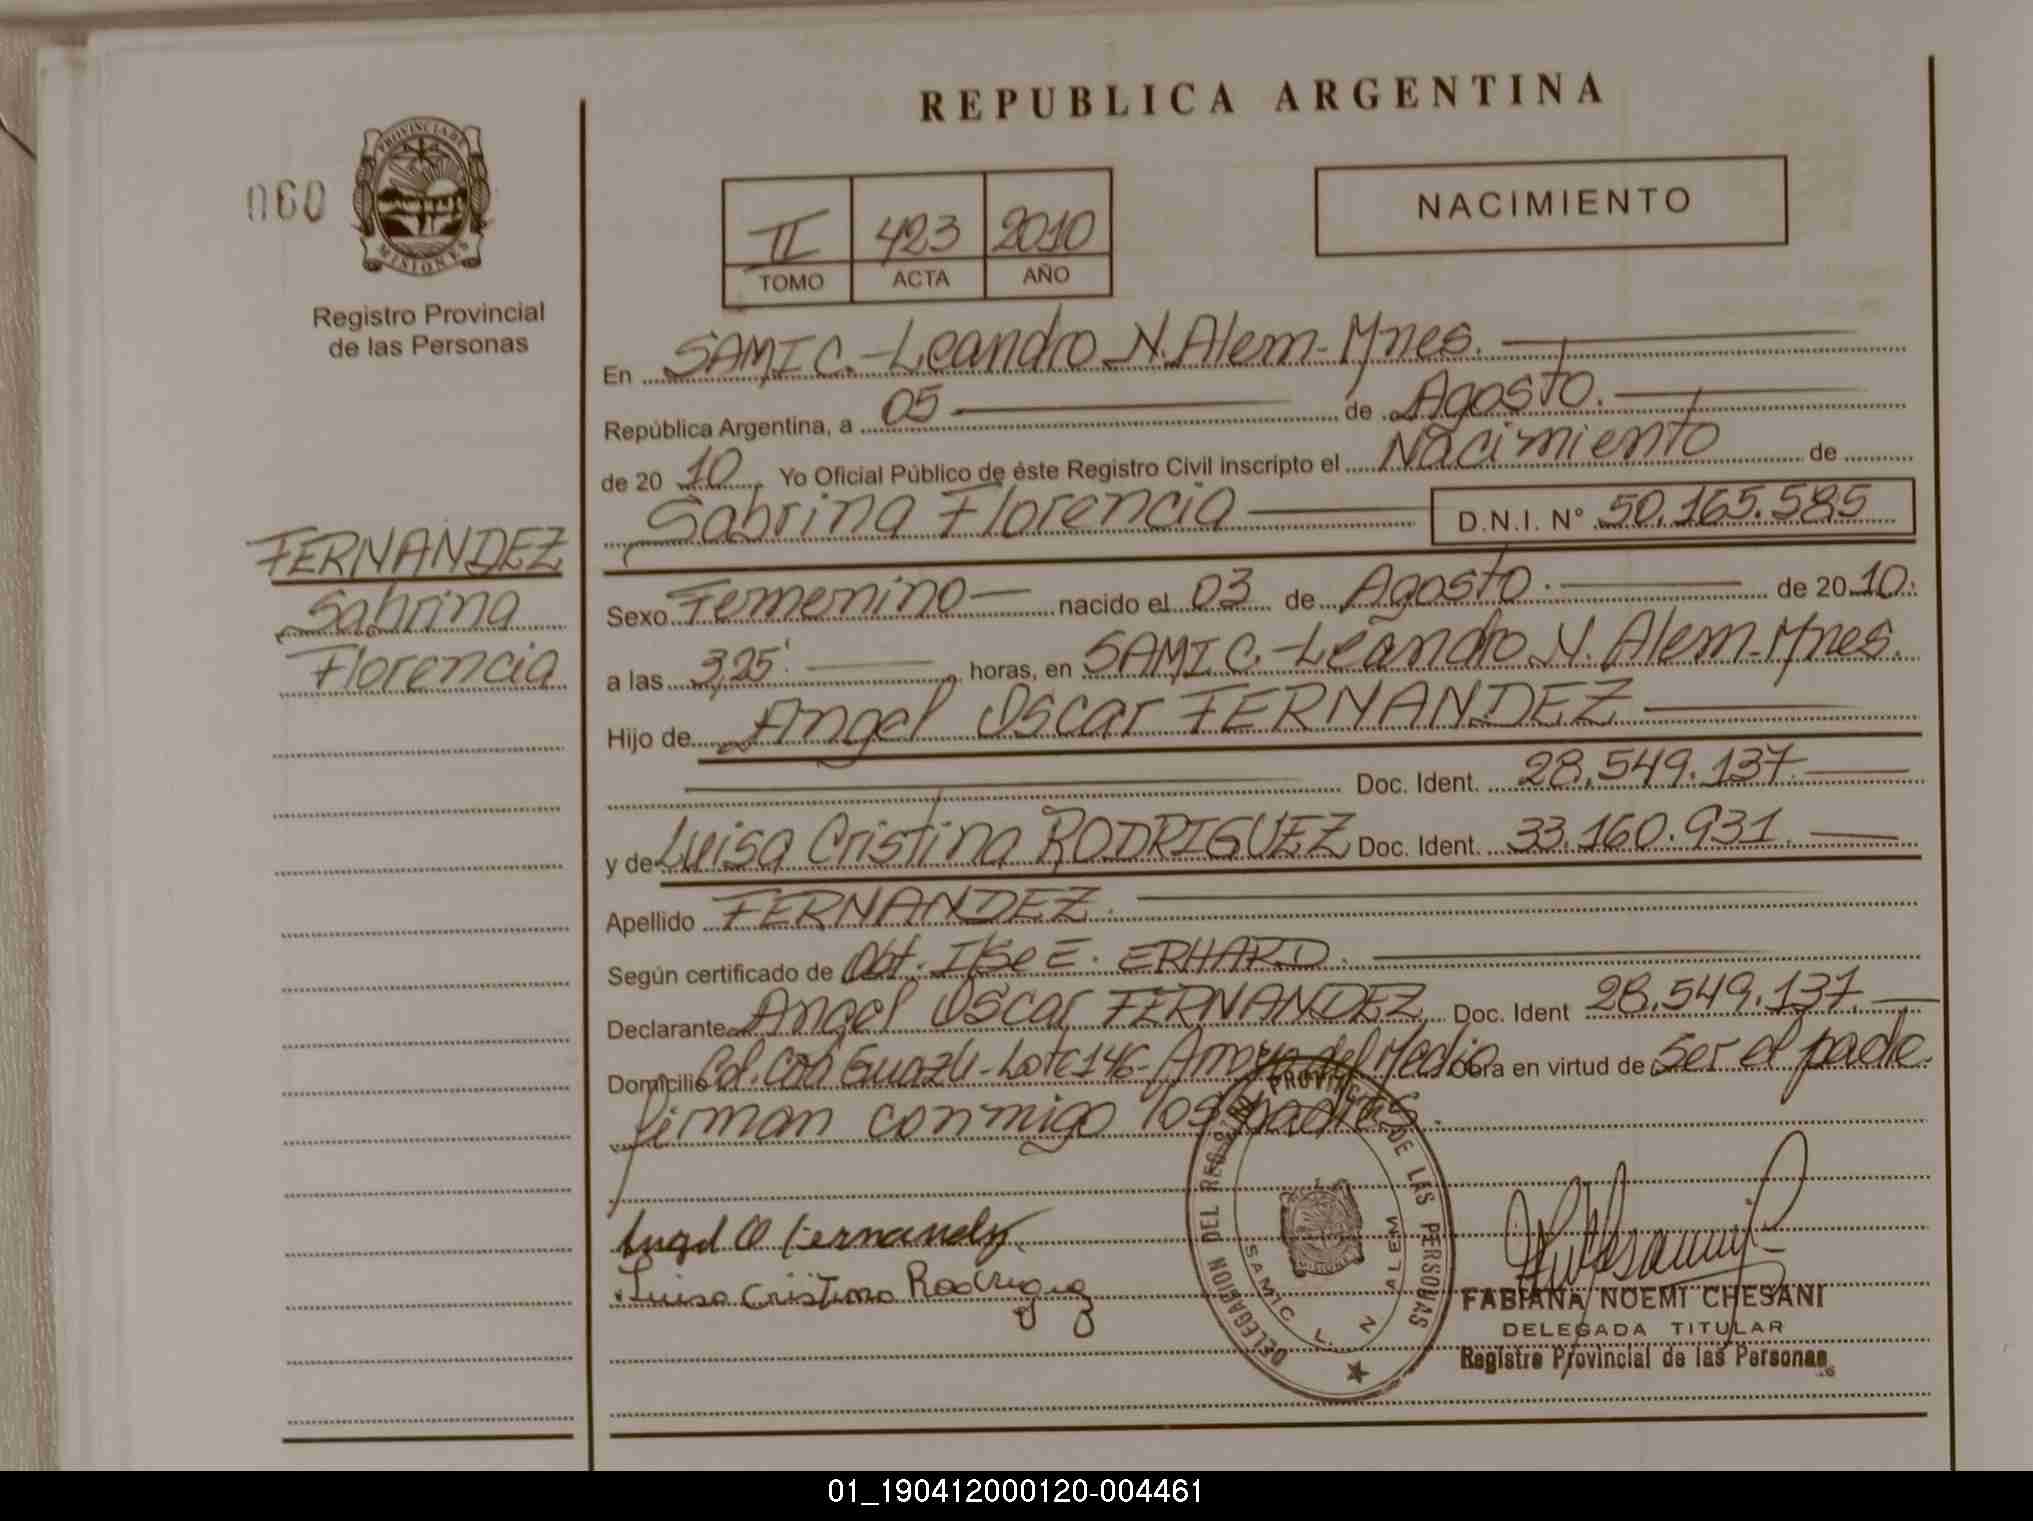 REPUBLICA ARGENTINA
PROVINCIA DE
MISIONES
060
Registro Provincial
de las Personas
NACIMIENTO
II 423 2010
TOMO ACTA AÑO
En SAMIC.-Leandro N. Alem-Mnes.
República Argentina, a 05 de Agosto.
de 2010. Yo Oficial Público de éste Registro Civil inscripto el Nacimiento de
Sabrina Florencia D.N.I. N° 50.165.585
FERNANDEZ
Sabrina
Florencia
Sexo Femenino nacido el 03 de Agosto. de 2010.
a las 3,25' horas, en SAMIC.-Leandro N. Alem-Mnes.
Hijo de Angel Oscar FERNANDEZ
Doc. Ident. 28.549.137
y de Luisa Cristina RODRIGUEZ Doc. Ident. 33.160.931.
Apellido FERNANDEZ.
Según certificado de Obt. Ilse E. ERHARD.
Declarante Angel Oscar FERNANDEZ Doc. Ident 28.549.137.
Domicilio Col. Guazú-Lote 146-Arroyo del Medio Obra en virtud de Ser el padre.
firman conmigo los padres.
Angel O Fernandez
Luisa Cristina Rodriguez
DELEGACION DEL REG. PROVINCIAL DE LAS PERSONAS
SAMIC L. N ALEM
MISIONES
FABIANA NOEMI CHESANI
DELEGADA TITULAR
Registro Provincial de las Personas
01_190412000120-004461